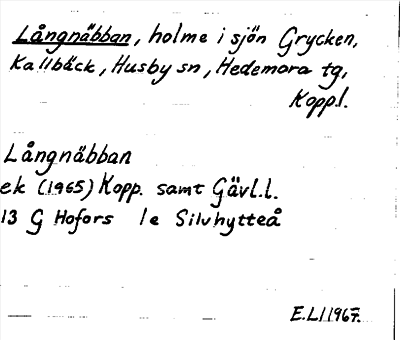 Långnäbban, holme i sjön Grycken,
Kallbäck, Husby sn, Hedemora tg,
Kopp.l.
Långnäbban
ek (1965) Kopp. samt Gävl.l.
13 G Hofors 1e Silvhytteå
E.Ll 1967.